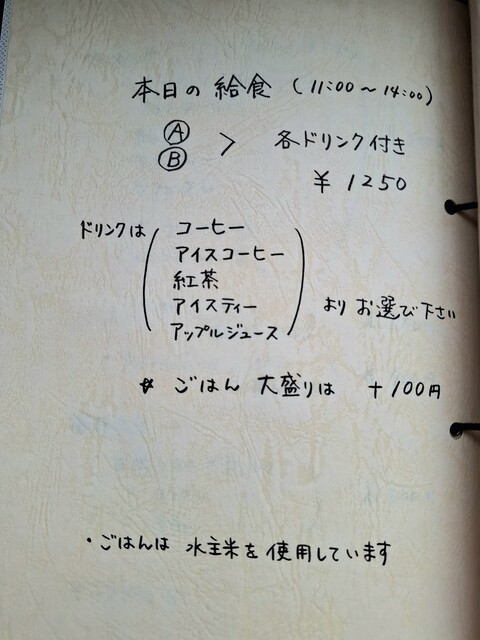 本日の給食 (11:00～14:00)
Ⓐ
Ⓑ > 各ドリンク付き
¥ 1250
ドリンクは
コーヒー
アイスコーヒー
紅茶
アイスティー
アップルジュース
よりお選び下さい
☆ ごはん 大盛りは +100円
・ごはんは 水主米を使用しています